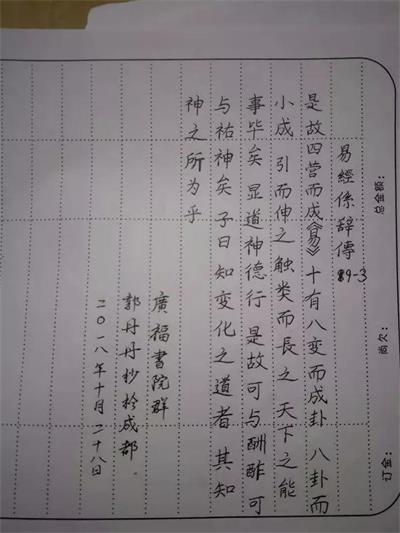 总金额:
尚欠:
订金:
易經係辞傳 89-3
是故四营而成《易》十有八变而成卦 八卦而
小成 引而伸之 触类而長之 天下之能
事毕矣 显道神德行 是故可与酬酢 可
与祐神矣 子曰 知变化之道者 其知
神之所为乎
廣福書院群
郭丹丹抄於成都.
二〇一八年十月二十八日